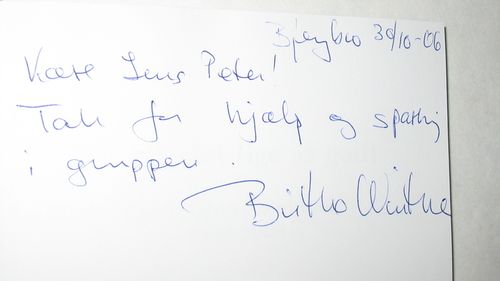 Bjergbro 30/10-06
Kære Jens Peter!
Tak for hjælp og sparring
i gruppen.
Birthe Winther